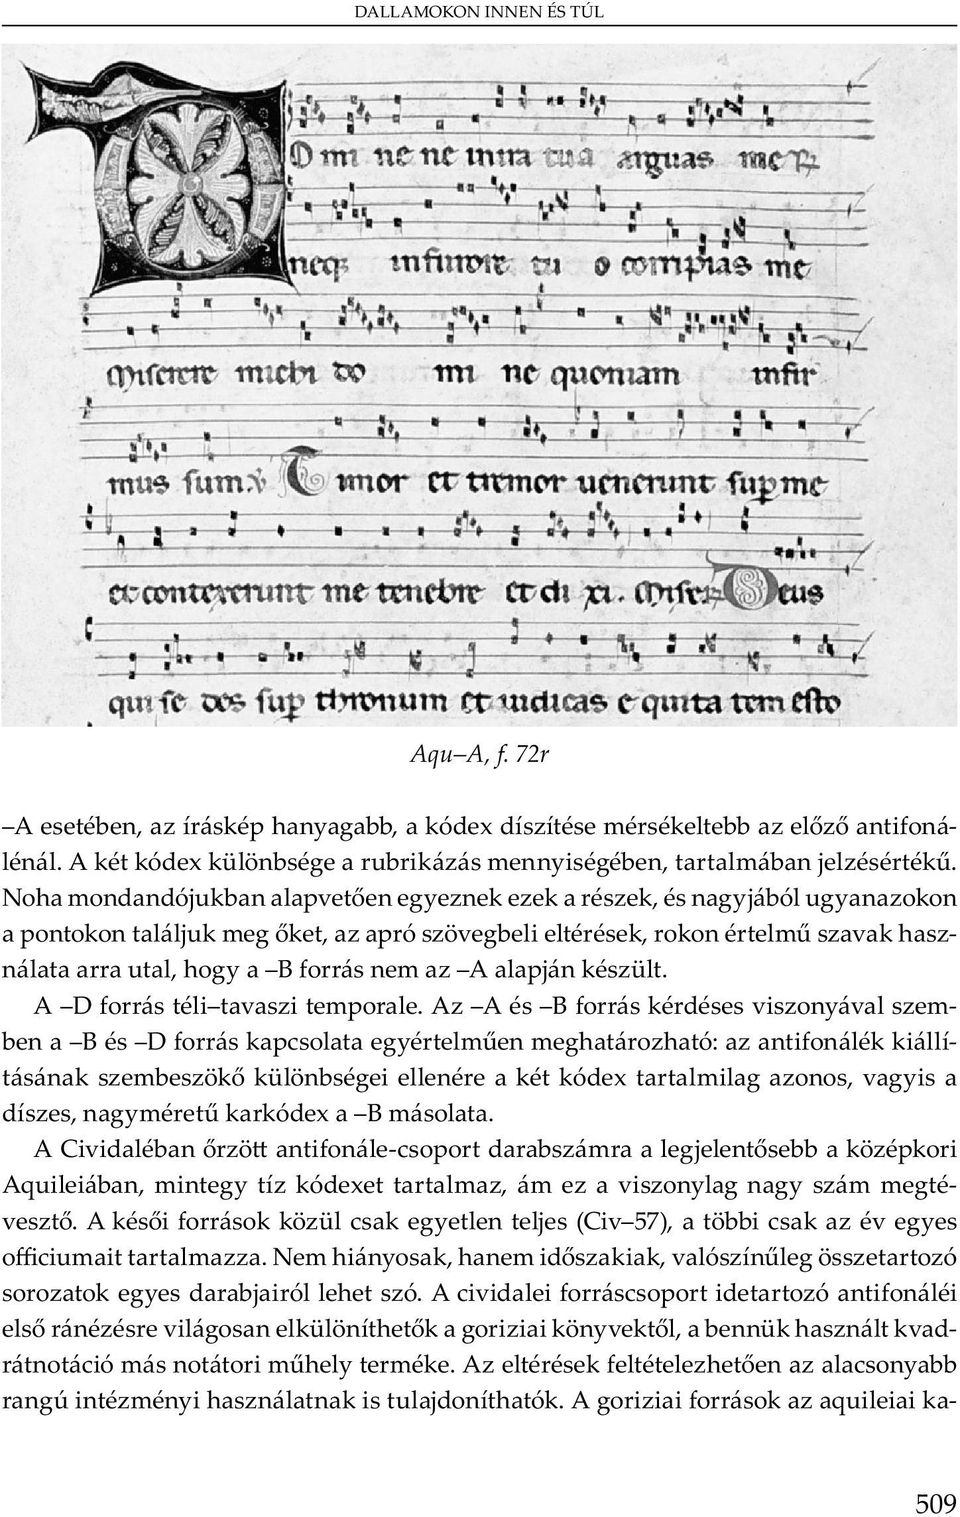 DALLAMOKON INNEN ÉS TÚL
Omi ne ne in ira tua arguas me
neq; in furore tu o corripias me
Miserere michi do mi ne quoniam infir
mus sum. Timor et tremor uenerunt sup me
et contexerunt me tenebre et di xi. Miser Deus
qui se des sup thronum et iudicas e quita tem esto
Aqu–A, f. 72r
–A esetében, az íráskép hanyagabb, a kódex díszítése mérsékeltebb az előző antifoná-
lénál. A két kódex különbsége a rubrikázás mennyiségében, tartalmában jelzésértékű.
Noha mondandójukban alapvetően egyeznek ezek a részek, és nagyjából ugyanazokon
a pontokon találjuk meg őket, az apró szövegbeli eltérések, rokon értelmű szavak hasz-
nálata arra utal, hogy a –B forrás nem az –A alapján készült.
A –D forrás téli–tavaszi temporale. Az –A és –B forrás kérdéses viszonyával szem-
ben a –B és –D forrás kapcsolata egyértelműen meghatározható: az antifonálék kiállí-
tásának szembeszökő különbségei ellenére a két kódex tartalmilag azonos, vagyis a
díszes, nagyméretű karkódex a –B másolata.
A Cividaléban őrzött antifonále-csoport darabszámra a legjelentősebb a középkori
Aquileiában, mintegy tíz kódexet tartalmaz, ám ez a viszonylag nagy szám megté-
vesztő. A késői források közül csak egyetlen teljes (Civ–57), a többi csak az év egyes
officiumait tartalmazza. Nem hiányosak, hanem időszakiak, valószínűleg összetartozó
sorozatok egyes darabjairól lehet szó. A cividalei forráscsoport idetartozó antifonáléi
első ránézésre világosan elkülöníthetők a goriziai könyvektől, a bennük használt kvad-
rátnotáció más notátori műhely terméke. Az eltérések feltételezhetően az alacsonyabb
rangú intézményi használatnak is tulajdoníthatók. A goriziai források az aquileiai ka-
509